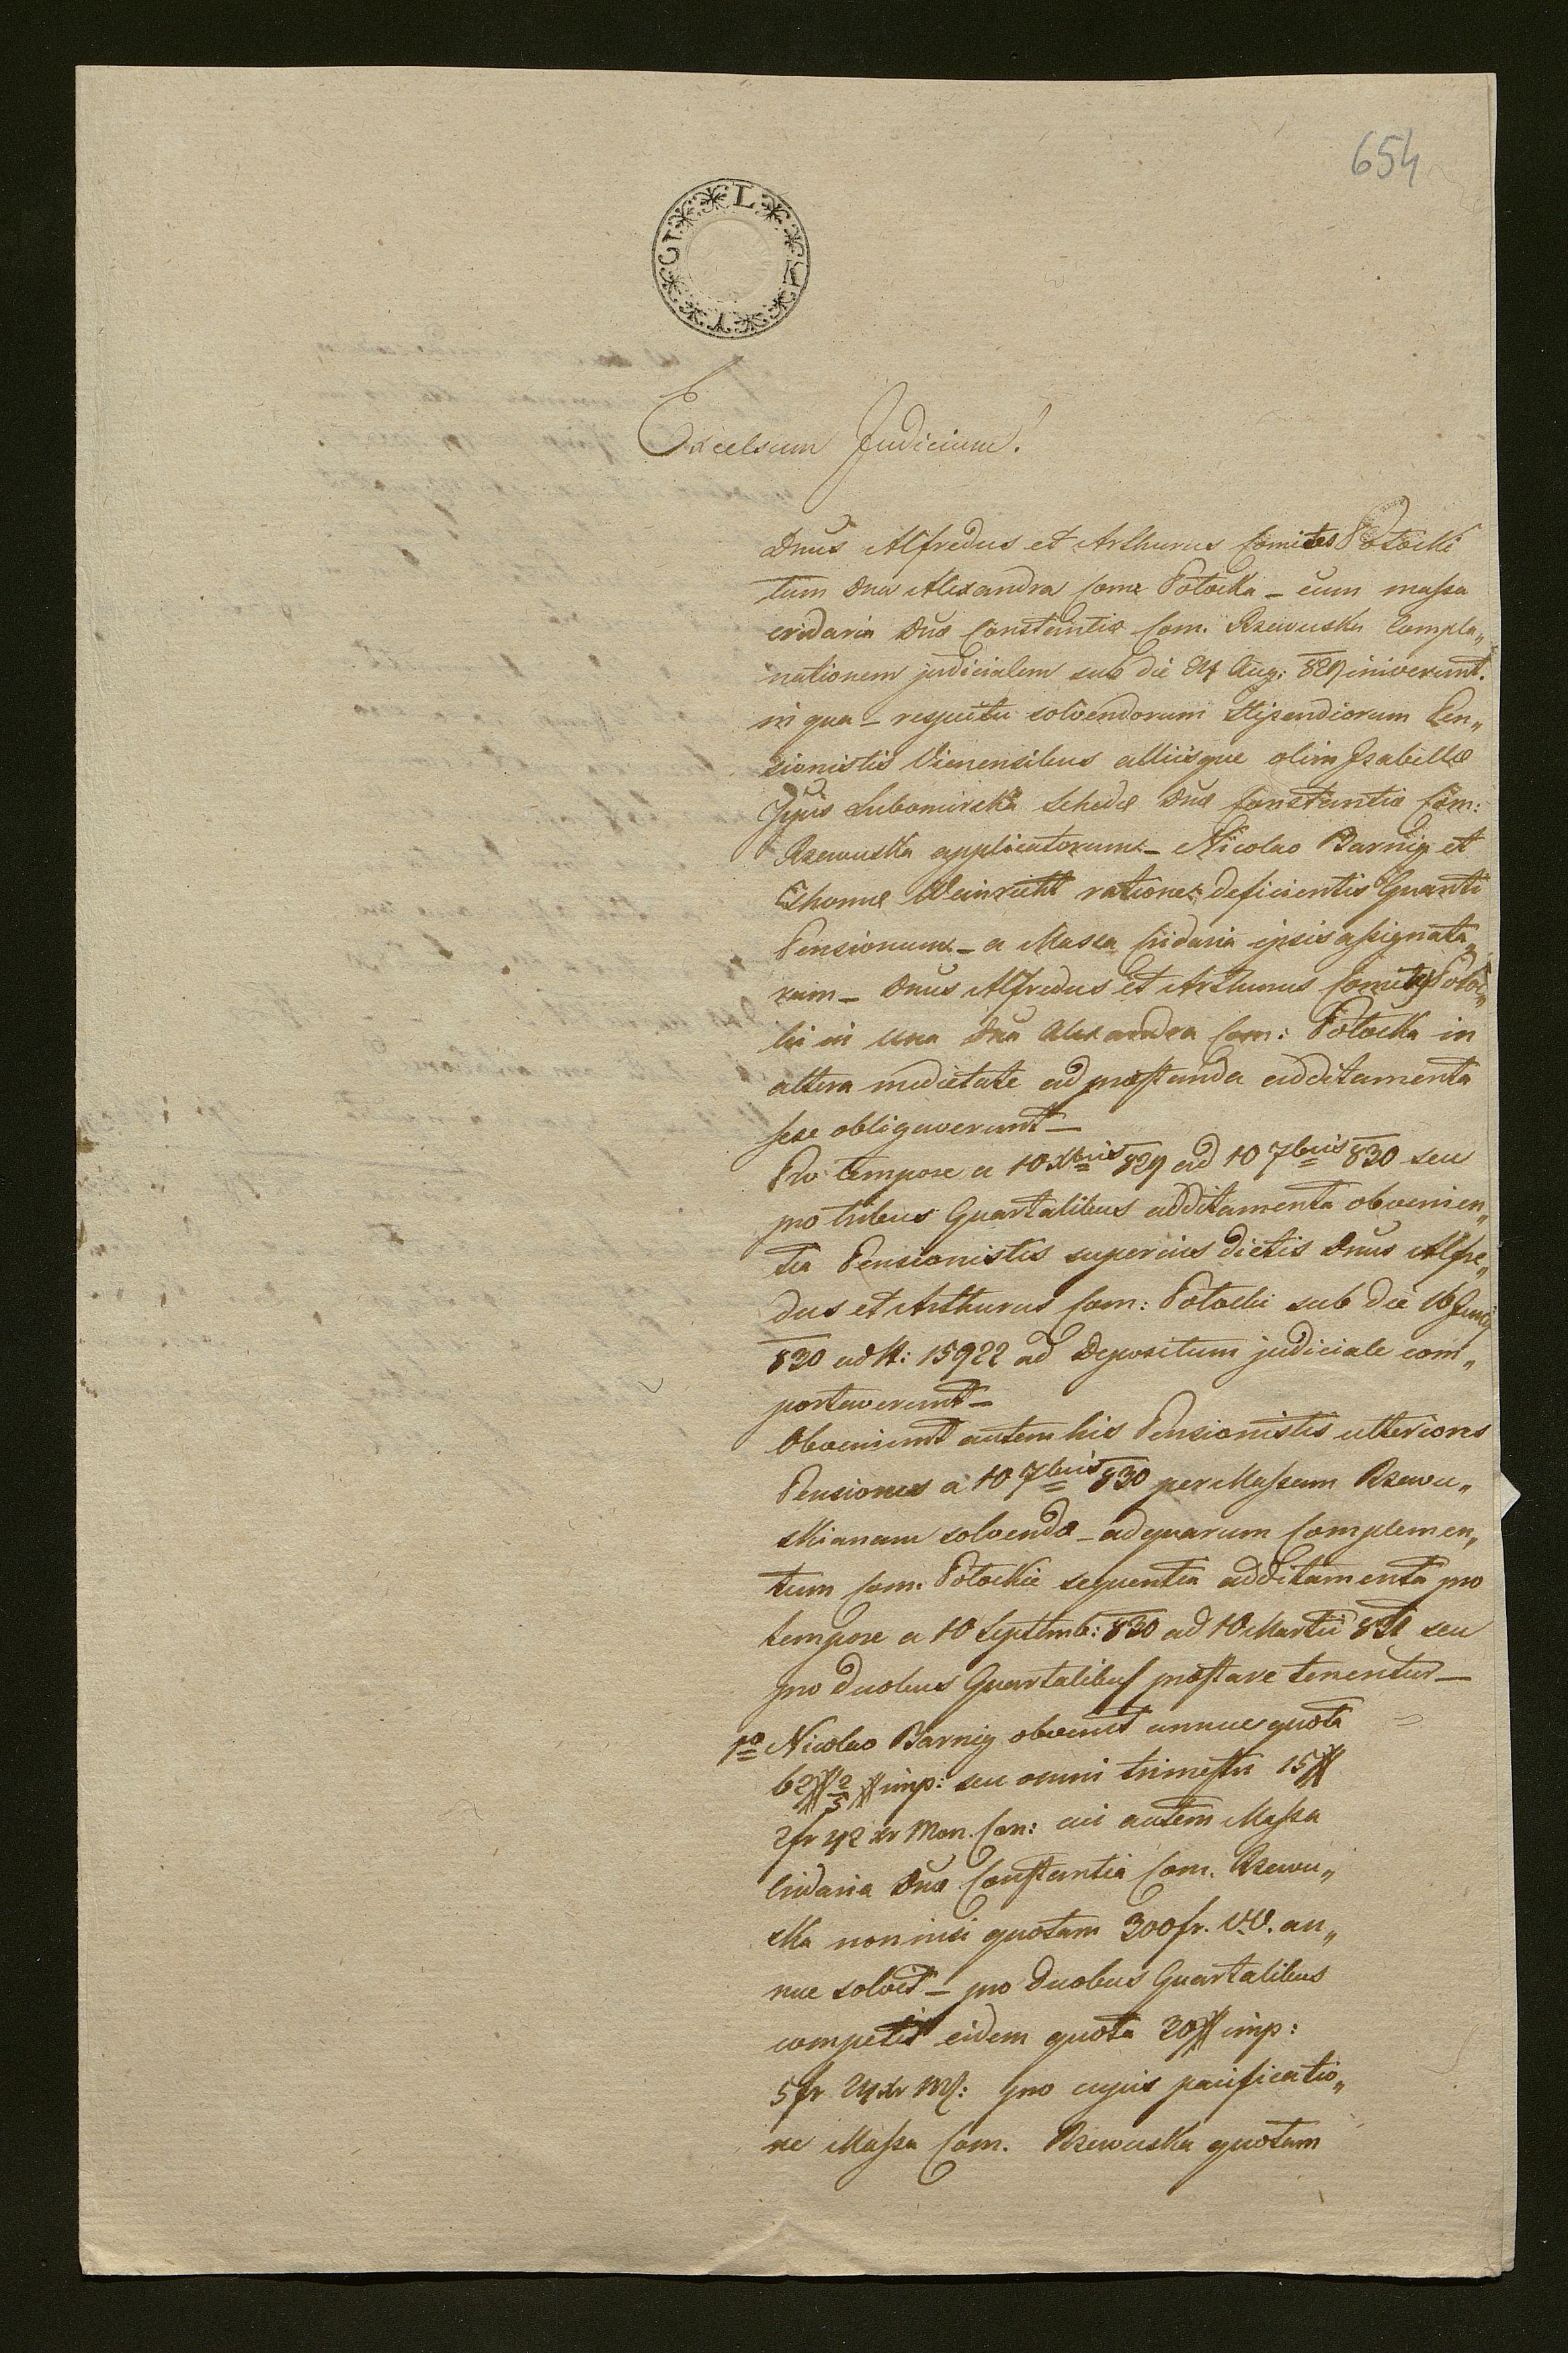 654
Excelsum Judicium!
Dnus Alfredus et Arthurus Comites Potocki
tum Dna Alexandra Come Potocka – cum massa
cridaria Dnae Constantiae Com. Rzewuska Compla„
nationem judicialem sub die 24 Aug: 829 iniverunt.
in qua – respectu solvendorum Stipendiorum Pen„
sionistis Vienensibus alliisque olim Izabellae
Ppis Lubomirska Schedae Dnae Constantiae Com:
Rzewuska applicatorum – Nicolao Barnig et
Thomae Weinricht ratione deficientis Quanti
Pensionum – a Massa Cridaria ipsis assignata„
rum – Dnus Alfredus et Arthurus Comites Potoc„
ki in una Dna Alexandra Com: Potocka in
altera medietate ad praestanda additamenta
sese obligaverunt –
Pro tempore a 10 Xbris 829 ad 10 7bris 830 seu
pro tribus Quartalibus additamenta obvenien„
tia Pensionistis superius dictis Dnus Alfre„
dus et Arthurus Com: Potocki sub die 16 Junij
830 ad N: 15922 ad Depositum judiciale com„
portaverunt –
Obveniunt autem his Pensionistis ulteriores
Pensiones a 10 7bris 830 per Massam Rzewu„
skianam solvendae – ad quarum Complemen„
tum Com. Potockie sequentia additamenta pro
tempore a 10 Septemb: 830 ad 10 Martii 831 seu
pro duobus Quartalibus praestare tenentur –
1o Nicolao Barnig obvenit annue quota
62# 2/3 # imp: seu omni trimestri 15#
2fr 42 xr Mon. Con: cui autem Massa
Cridaria Dnae Constantia Com. Rzewu„
ska non nisi quotam 300fr. W.W. an„
nue solvit – pro duobus Quartalibus
competit eidem quota 30# imp:
5fr 24 xr MC: pro cujus pacificatio„
ne Massa Com. Rzewuska quotam